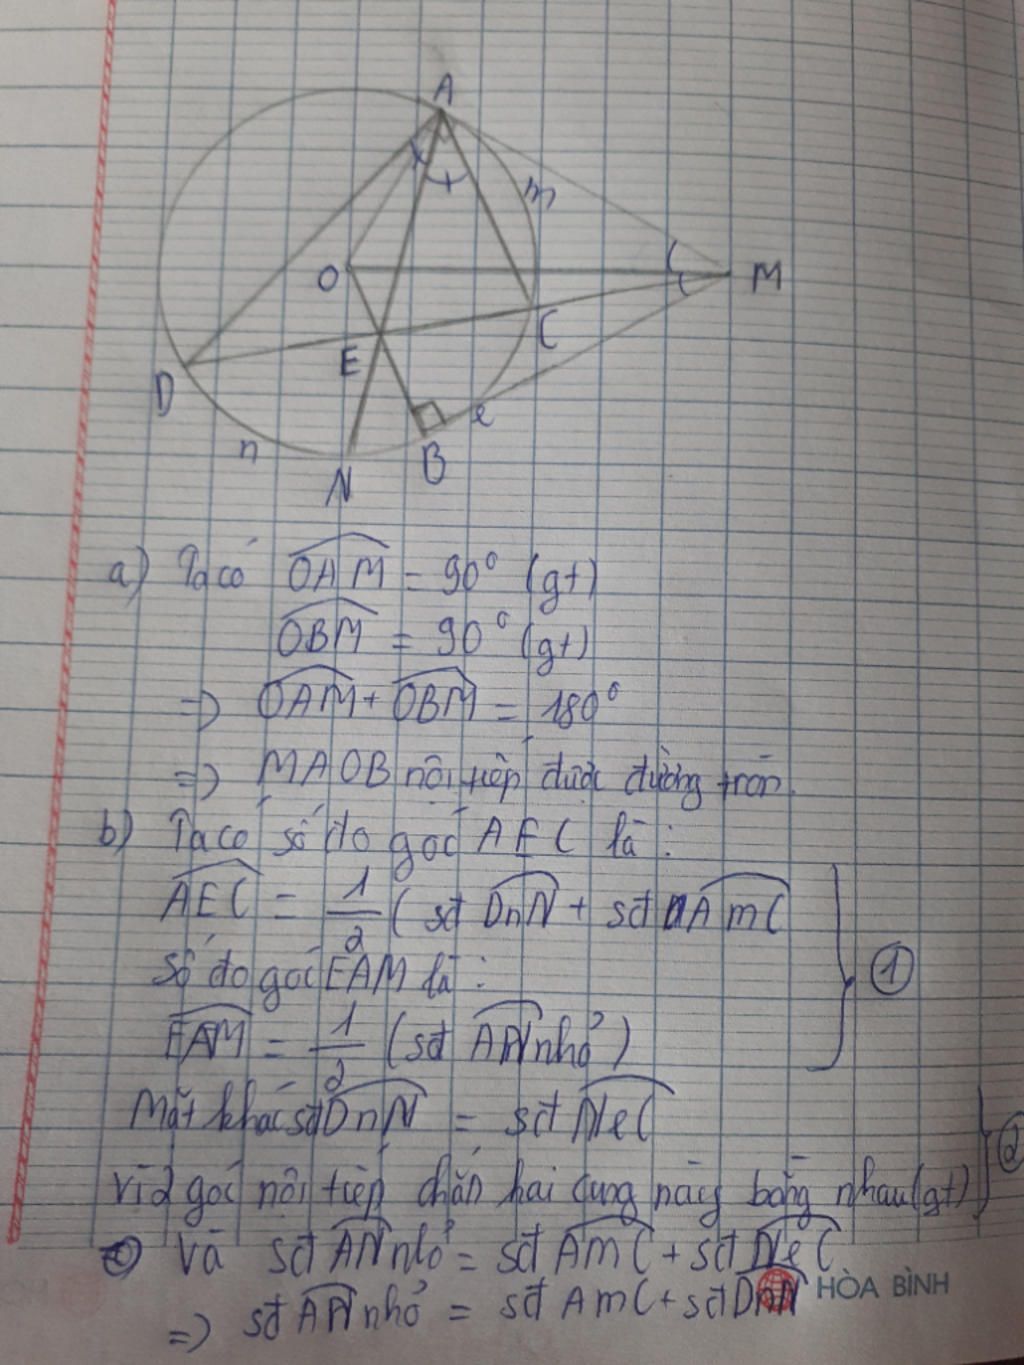 A
m
O
M
E
C
D
e
n
B
N
a) Ta có OAM = 90° (gt)
OBM = 90° (gt)
=> OAM + OBM = 180°
=> MAOB nội tiếp được đường tròn.
b) Ta có số đo góc AEC là:
AEC = 1/2 (sđ DnN + sđ AmC
số đo góc EAM là:
EAM = 1/2 (sđ AN nhỏ)
①
Mặt khác sđ DnN = sđ NeC
vì 2 góc nội tiếp chắn hai cung này bằng nhau (gt)
②
Và sđ AN nhỏ = sđ AmC + sđ NeC
=> sđ AN nhỏ = sđ AmC + sđ DnN
HÒA BÌNH